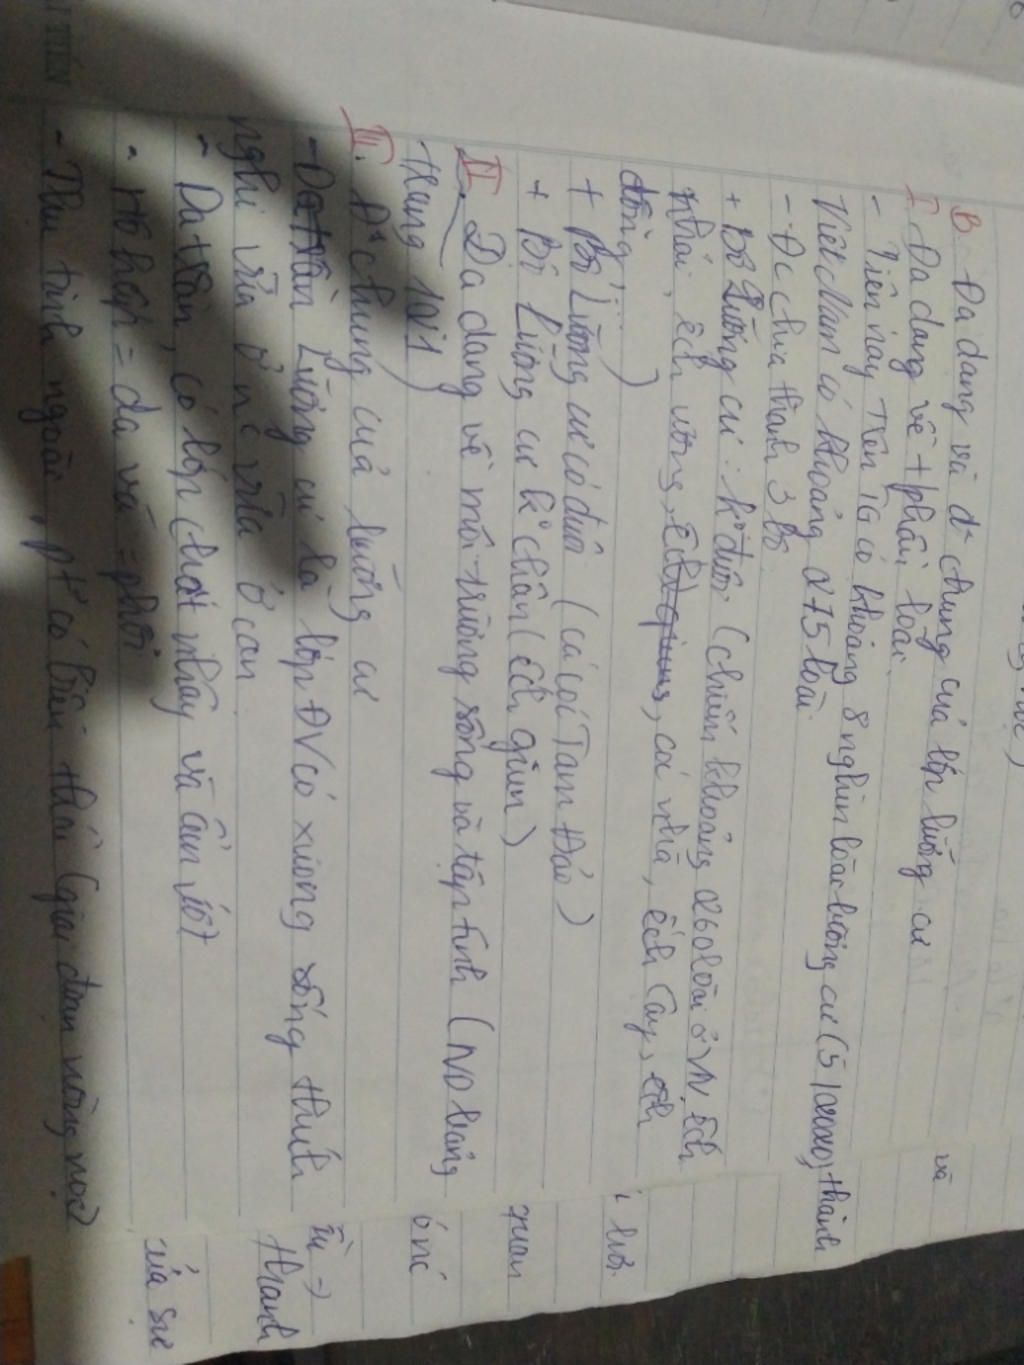 B. Đa dạng và đ² chung của lớp lưỡng cư
I. Đa dạng về tphần loài
- Hiện nay Trên TG có khoảng 8 nghìn loài lưỡng cư
Việt Nam có khoảng 275 loài
- Đc chia thành 3 bộ
+ Bộ Lưỡng cư: k° đuôi (chiếm khoảng 260 loài ở VN, ếch
nhái, ếch ương, cá nhà, ếch cây, ếch
đồng...)
+ Bộ Lưỡng cư có đuôi (cá cóc Tam Đảo)
+ Bộ Lưỡng cư k° chân (Ếch giun)
II. Đa dạng về môi trường sống và tập tính (ND bảng
trang 101)
III. Đ² chung của lưỡng cư
- Lưỡng cư là lớp ĐV có xương sống thích
nghi vừa ở nc vừa ở cạn
- Da trần, có lớp chất nhầy và ẩm ướt
- Hô hấp = da và = phổi
- Thụ tinh ngoài, pt² có biến thái (giai đoạn nòng nọc)
và
xoan
ở nc
thanh
của sư